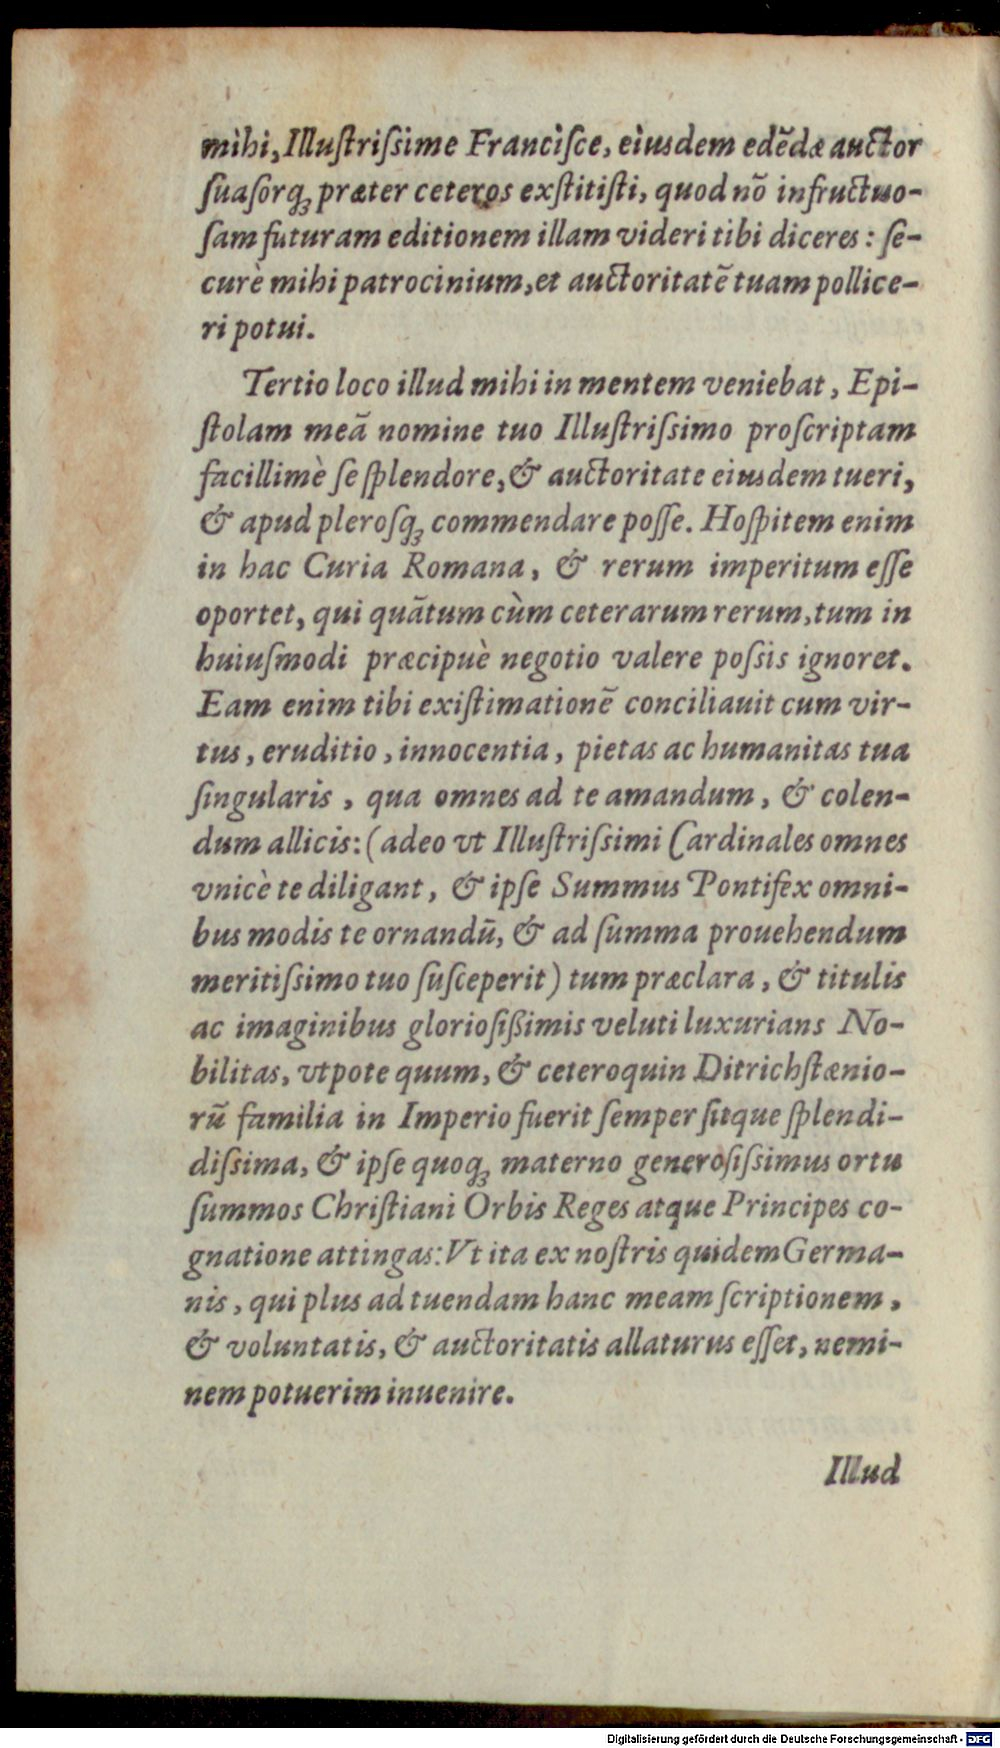 mihi, Illuſtriſsime Franciſce, eiusdem edēdæ auctor
ſuaſorq́ꝫ præter ceteros exſtitiſti, quod nō infructuo-
ſam futuram editionem illam videri tibi diceres: ſe-
curè mihi patrocinium, et auctoritatē tuam pollice-
ri potui.
Tertio loco illud mihi in mentem veniebat, Epi-
ſtolam meā nomine tuo Illuſtriſsimo proſcriptam
facillimè ſe ſplendore, & auctoritate eiusdem tueri,
& apud pleroſqꝫ commendare poſſe. Hoſpitem enim
in hac Curia Romana, & rerum imperitum eſſe
oportet, qui quātum cùm ceterarum rerum, tum in
huiuſmodi præcipuè negotio valere poſsis ignoret.
Eam enim tibi exiſtimationē conciliauit cum vir-
tus, eruditio, innocentia, pietas ac humanitas tua
ſingularis, qua omnes ad te amandum, & colen-
dum allicis: (adeo vt Illuſtriſsimi Cardinales omnes
vnicè te diligant, & ipſe Summus Pontifex omni-
bus modis te ornandū, & ad ſumma prouehendum
meritiſsimo tuo ſuſceperit) tum præclara, & titulis
ac imaginibus glorioſißimis veluti luxurians No-
bilitas, vtpote quum, & ceteroquin Ditrichſtænio-
rū familia in Imperio fuerit ſemper ſitque ſplendi-
diſsima, & ipſe quoqꝫ materno generoſiſsimus ortu
ſummos Chriſtiani Orbis Reges atque Principes co-
gnatione attingas: Vt ita ex noſtris quidem Germa-
nis, qui plus ad tuendam hanc meam ſcriptionem,
& voluntatis, & auctoritatis allaturus eſſet, nemi-
nem potuerim inuenire.
Illud
Digitalisierung gefördert durch die Deutsche Forschungsgemeinschaft - DFG